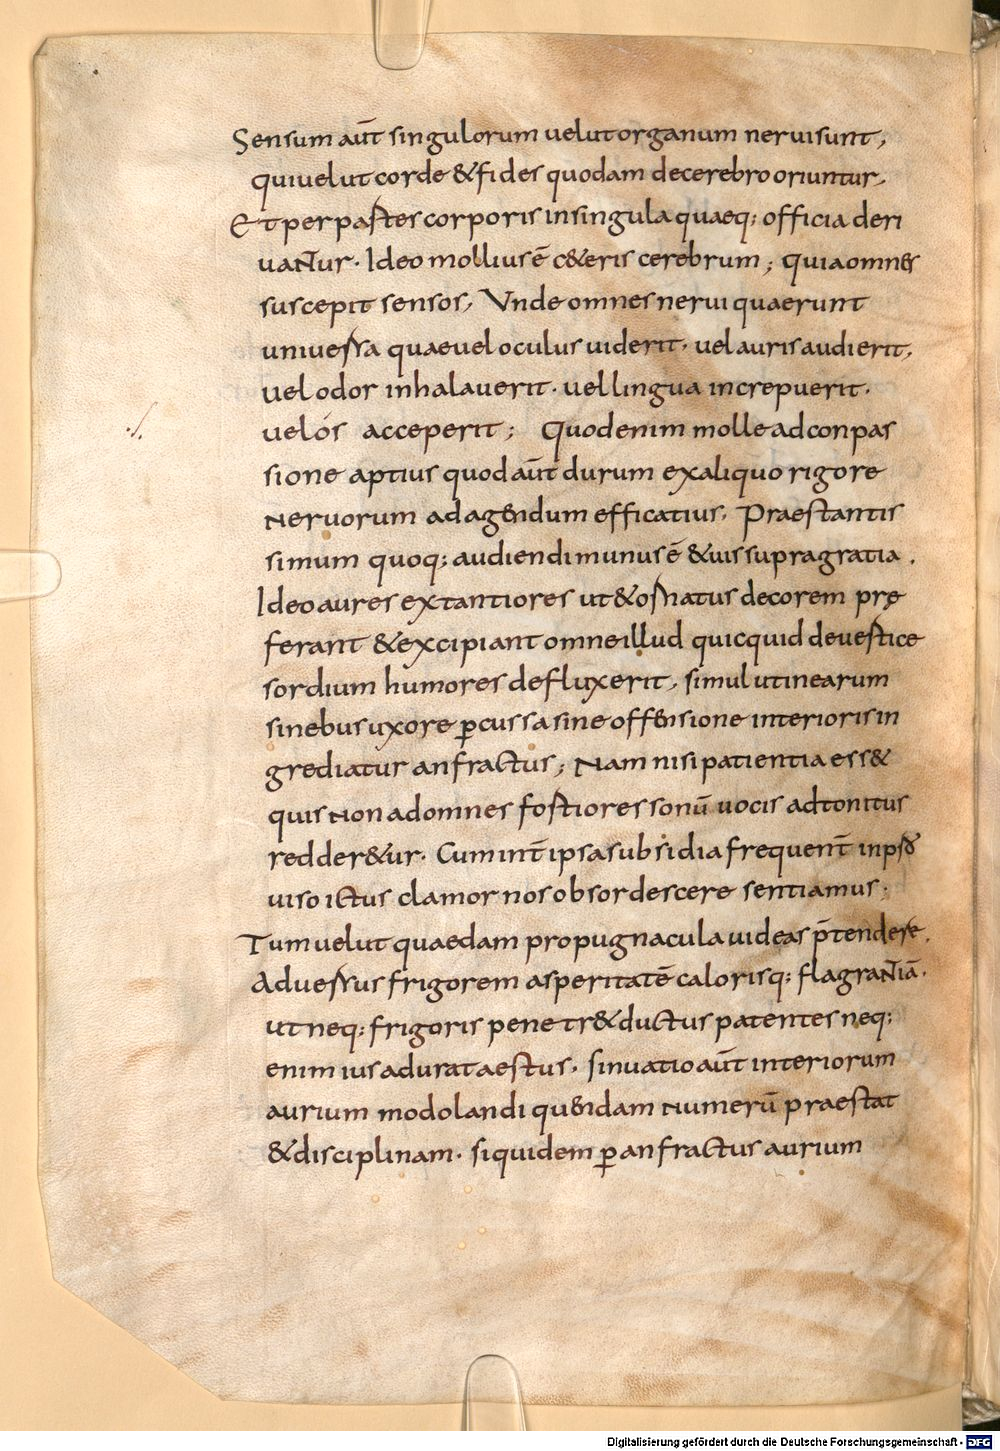 Sensum aut̄ singulorum uelut organum nerui sunt;
qui uelut corde & fides quodam de cerebro oriuntur,
Et per partes corporis in singula quaeq; officia deri
uantur. Ideo mollius ē c&eris cerebrum; quia omnes
suscepit sensos, Vnde omnes nerui quaerunt
uniuersa quae uel oculus uiderit, uel auris audierit,
uel odor inhalauerit. uel lingua increpuerit.
uel ós acceperit; Quod enim molle ad conpas
sione aptius quod aut̄ durum ex aliquo rigore
neruorum ad agendum efficatius, Praestantis
simum quoq; audiendi munus ē & uis supra gratia.
Ideo aures extantiores ut & ornatus decorem prę
ferant & excipiant omne illud quicquid de uestice
sordium humores defluxerit, simul ut in earum
sinebus uxore p̱cussa sine offensione interioris in
grediatur anfractus; Nam nisi patientia ess&
quis non ad omnes fortiores sonū uocis adtonitus
redder&ur. Cum int̄ ipsa subsidia frequent̄ inp̱
uiso ictus clamor nos obsordescere sentiamus.
Tum uelut quaedam propugnacula uideas p̄tendere.
Aduersus frigorem asperitatē calorisq; flagrantiā.
ut neq; frigoris penetr& ductus patentes neq;
enim ius adurat aestus. sinuatio aut̄ interiorum
aurium modolandi quendam numerū praestat
& disciplinam. siquidem p̱ anfractus aurium
Digitalisierung gefördert durch die Deutsche Forschungsgemeinschaft - DFG